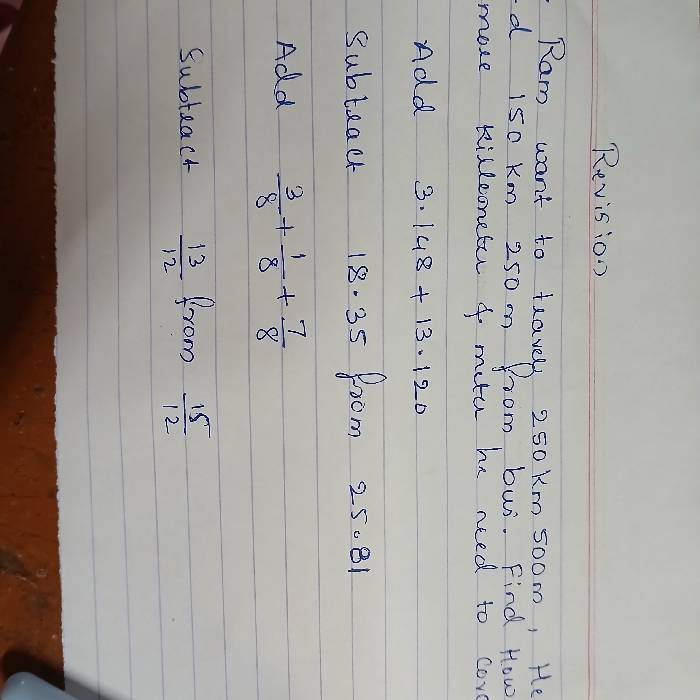 Revision
Ram want to travel 250 km 500 m, He
d 150 km 250 m from bus. Find How
more killeometer & meter he need to
Add 3.148 + 13.120
Subtract 18.35 from 25.81
Add 3/8 + 1/8 + 7/8
Subtract 13/12 from 15/12